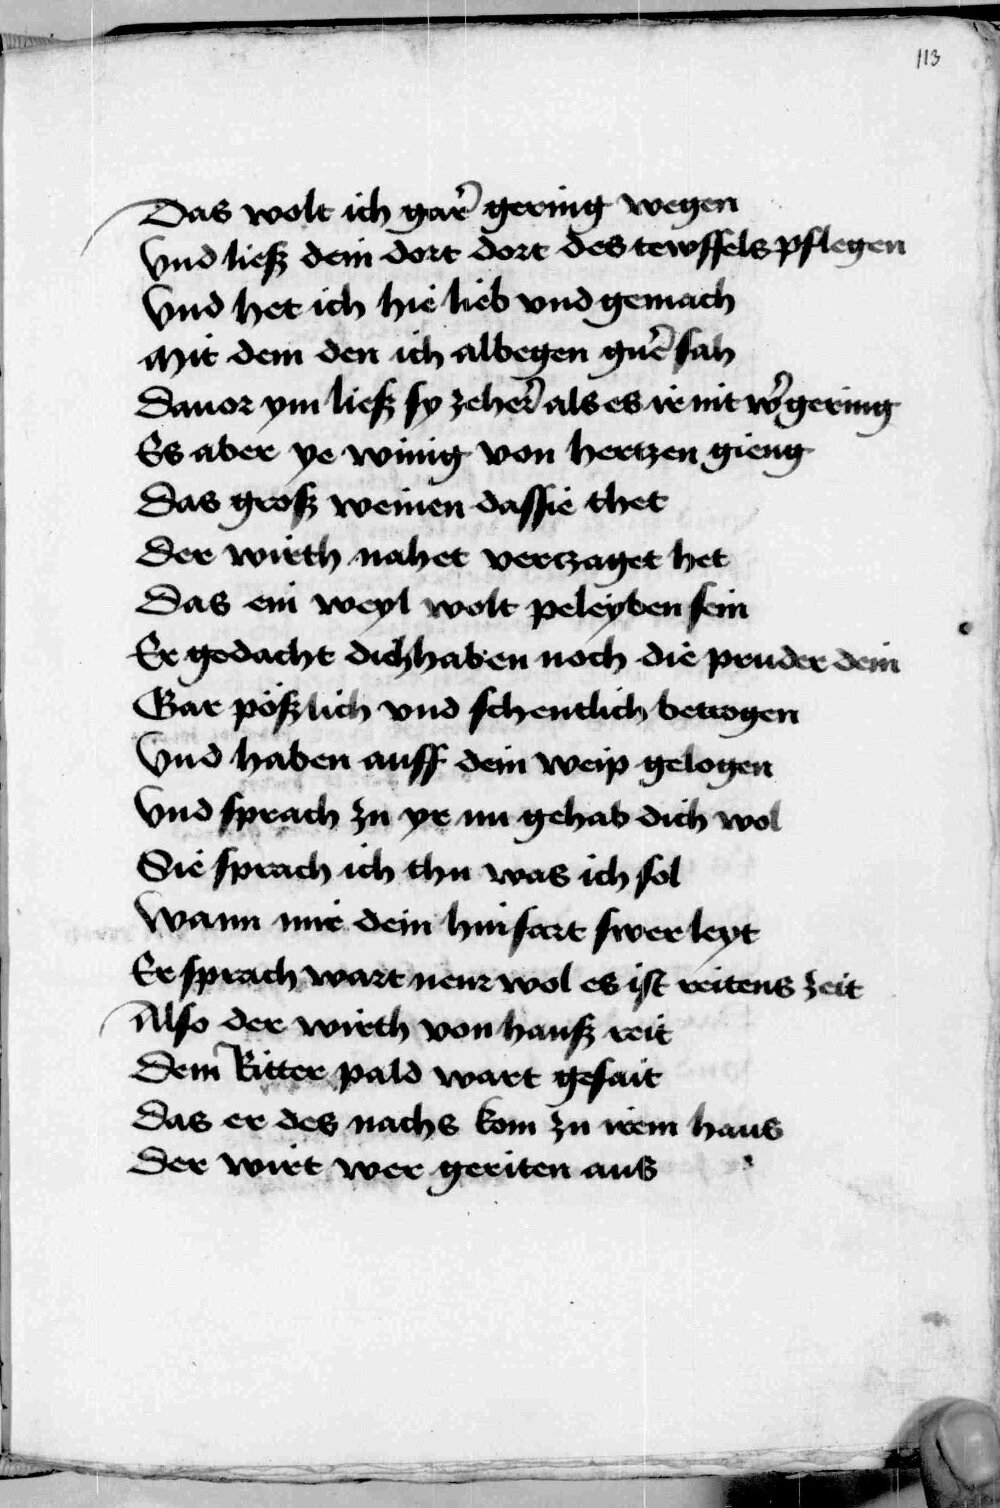 113
Das wolt ich gar gering wegen
Vnd liesz dem dort dort des tewffels pflegen
Vnd het ich hie lieb vnd gemach
Mit dem den ich albegen gern sah
Dauor ym liesz sy zeher als es ir nit wer gering
Es aber ye winig von hertzen gieng
Das grosz weinen das sie thet
Der wirth nahet verczaget het
Das ein weyl wolt peleyben sein
Er gedacht dich haben noch die pruder dein
Gar pöszlich vnd schentlich betrogen
Vnd haben auff dein weip gelogen
Vnd sprach zu yr nu gehab dich wol
Sie sprach ich thu was ich sol
Wann mir dein hinfart swer leyt
Er sprach wart neur wol es ist reitens zeit
Also der wirth von hausz reit
Dem Ritter pald wart gesait
Das er des nachs kom zu irem haus
Der wirt wer geriten aus